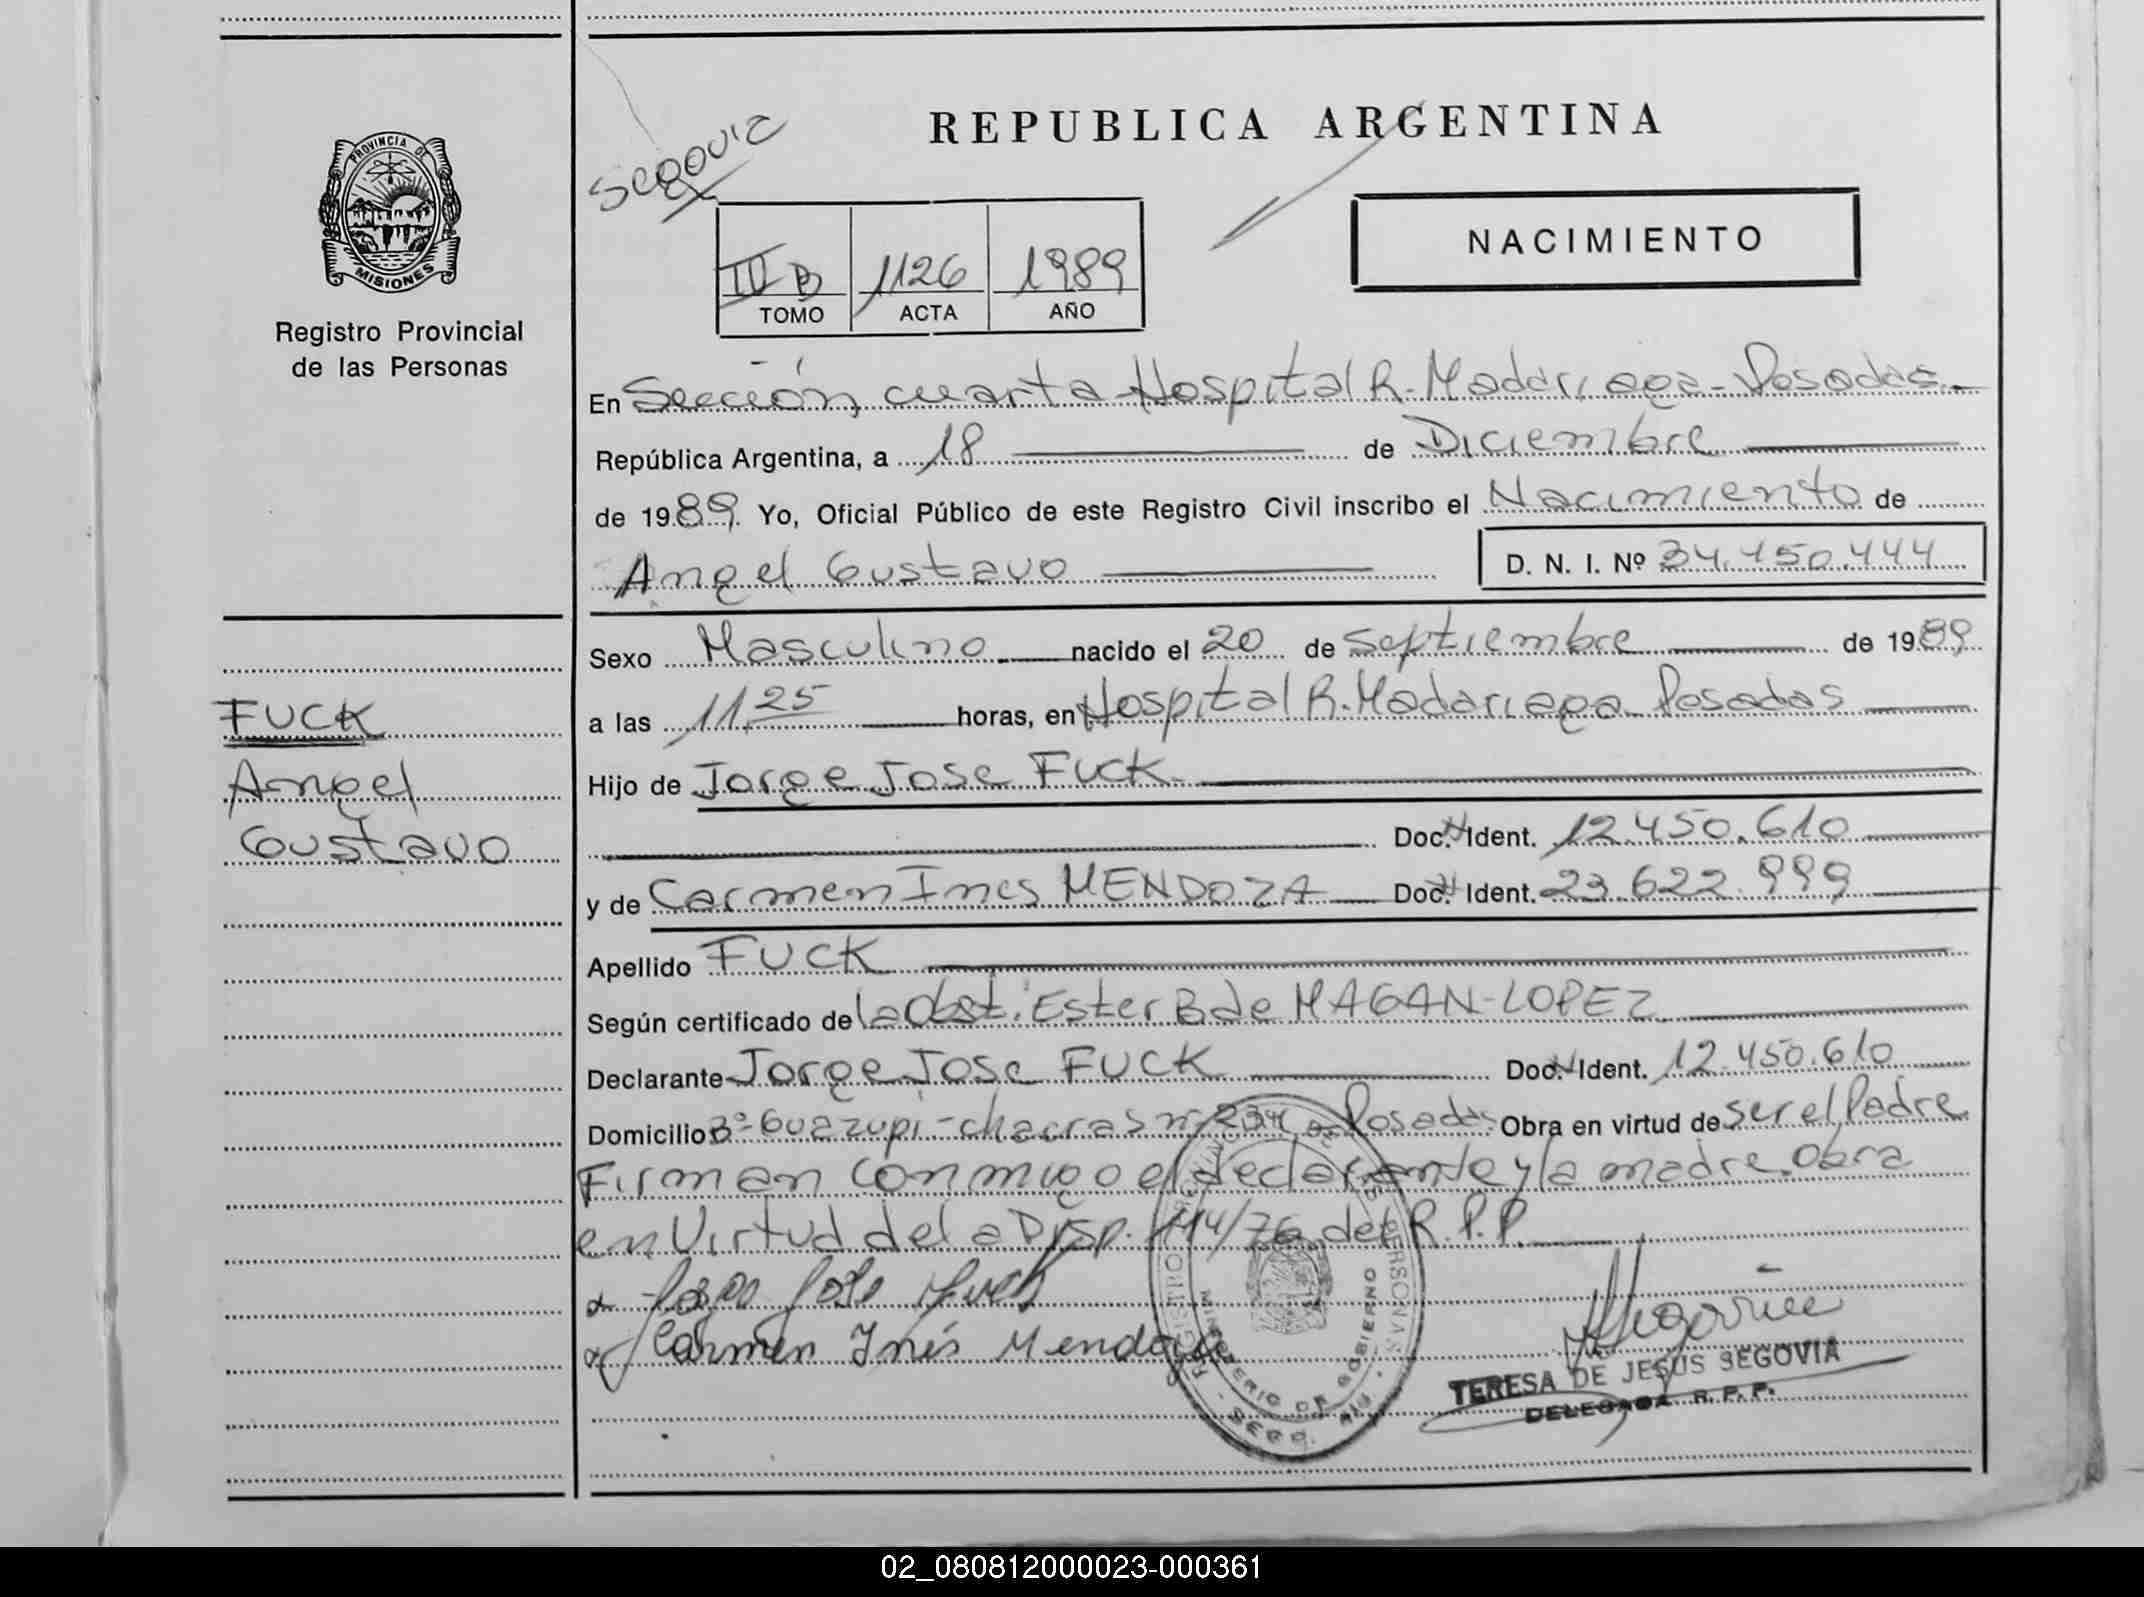 REPUBLICA ARGENTINA
Segovia
PROVINCIA DE
MISIONES
Registro Provincial
de las Personas
NACIMIENTO
IV B 1126 1989
TOMO ACTA AÑO
En Sección cuarta Hospital R. Madariaga - Posadas
República Argentina, a 18 de Diciembre
de 1989. Yo, Oficial Público de este Registro Civil inscribo el Nacimiento de
Angel Gustavo D. N. I. Nº 34.450.444
Sexo Masculino nacido el 20 de Septiembre de 1989
a las 11,25 horas, en Hospital R. Madariaga Posadas
Hijo de Jorge Jose Fuck
Doc. Ident. 12.450.610
y de Carmen Ines MENDOZA Doc. Ident. 23.622.999
Apellido FUCK
Según certificado de la Obst. Ester B de MAGAN-LOPEZ
Declarante Jorge Jose FUCK Doc. Ident. 12.450.610
Domicilio Bº Guazupi - chacras nº 234 - Posadas Obra en virtud de ser el Padre
Firman conmigo el declarante y la madre. Obra
en Virtud de la Disp. 114/76 del R.P.P.
Jorge Jose Fuck
Carmen Inés Mendoza
MINISTERIO DE GOBIERNO
Segovia
TERESA DE JESUS SEGOVIA
DELEGADA R. P. P.
FUCK
Angel
Gustavo
02_080812000023-000361